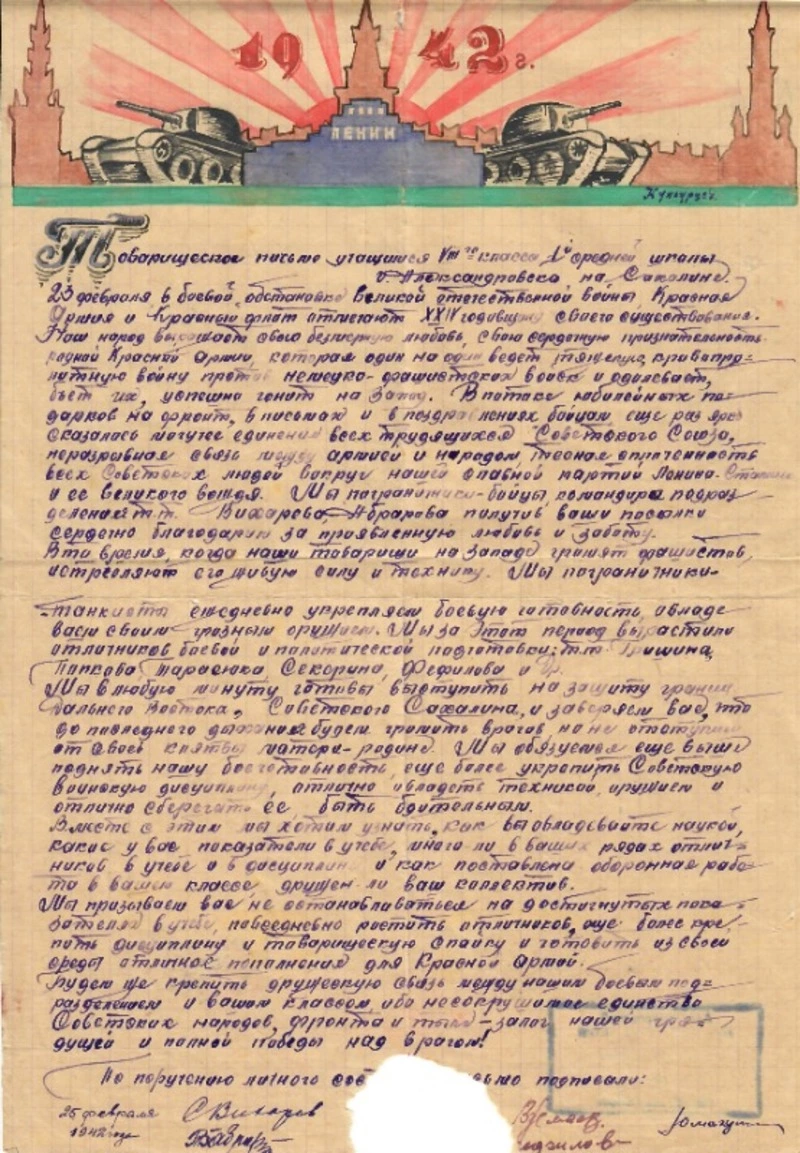 1942 г.
ЛЕНИН
Товарищеское письмо учащимся VIII го класса 1й средней школы
г. Александровска на Сахалине.
23 февраля в боевой обстановке Великой отечественной войны, Красная
Армия и Красный флот отмечают XXIV годовщину своего существования.
Наш народ выражает свою безмерную любовь, свою сердечную признательность
родной Красной Армии, которая один на один ведет тяжелую, кровопро-
литную войну против немецко-фашистских войск и одолевает,
бьет их, успешно гонит на Запад. В потоке юбилейных по-
дарков на фронт, в письмах и в поздравлениях бойцам еще раз ярко
сказалось могучее единение всех трудящихся Советского Союза,
неразрывная связь между армией и народом, тесная сплоченность
всех Советских людей вокруг нашей славной партии Ленина-Сталина
и ее великого вождя. Мы пограничники-бойцы, командиры подраз-
деления т.т. Вихарева, Абрарова получив ваши посылки
сердечно благодарим за проявленную любовь и заботу.
В то время, когда наши товарищи на Западе громят фашистов,
истребляют его живую силу и технику. Мы пограничники-
танкисты ежедневно укрепляем боевую готовность, овладе
ваем своим грозным оружием. Мы за этот период вырастили
отличников боевой и политической подготовки: т.т. Гришина,
Попкова Тарасюка, Секорина, Фефилова и др.
Мы в любую минуту готовы выступить на защиту границ
Дальнего Востока, Советского Сахалина, и заверяем вас, что
до последнего дыхания будем громить врагов, но не отступим
от своей клятвы матери-родине. Мы обязуемся еще выше
поднять нашу боеготовность, еще более укрепить Советскую
воинскую дисциплину, отлично овладеть техникой, оружием и
отлично сберегать ее быть бдительным.
Вместе с этим мы хотим узнать, как вы овладеваете наукой,
какие у вас показатели в учебе, много ли в ваших рядах отлич-
ников в учебе и в дисциплине и как поставлена оборонная рабо-
та в вашем классе, дружен ли ваш коллектив.
Мы призываем вас не останавливаться на достигнутых пока-
зателях в учебе, повседневно растить отличников, еще более кре-
пить дисциплину и товарищескую спайку и готовить из своей
среды отличное пополнение для Красной Армии.
Будем же крепить дружескую связь между нашим боевым под-
разделением и вашим классом, ибо несокрушимое единство
Советских народов, фронта и тыла - залог нашей
дущей и полной победы над врагом!
По поручению личного сос письмо подписали:
25 февраля
1942 года
С Вихарев